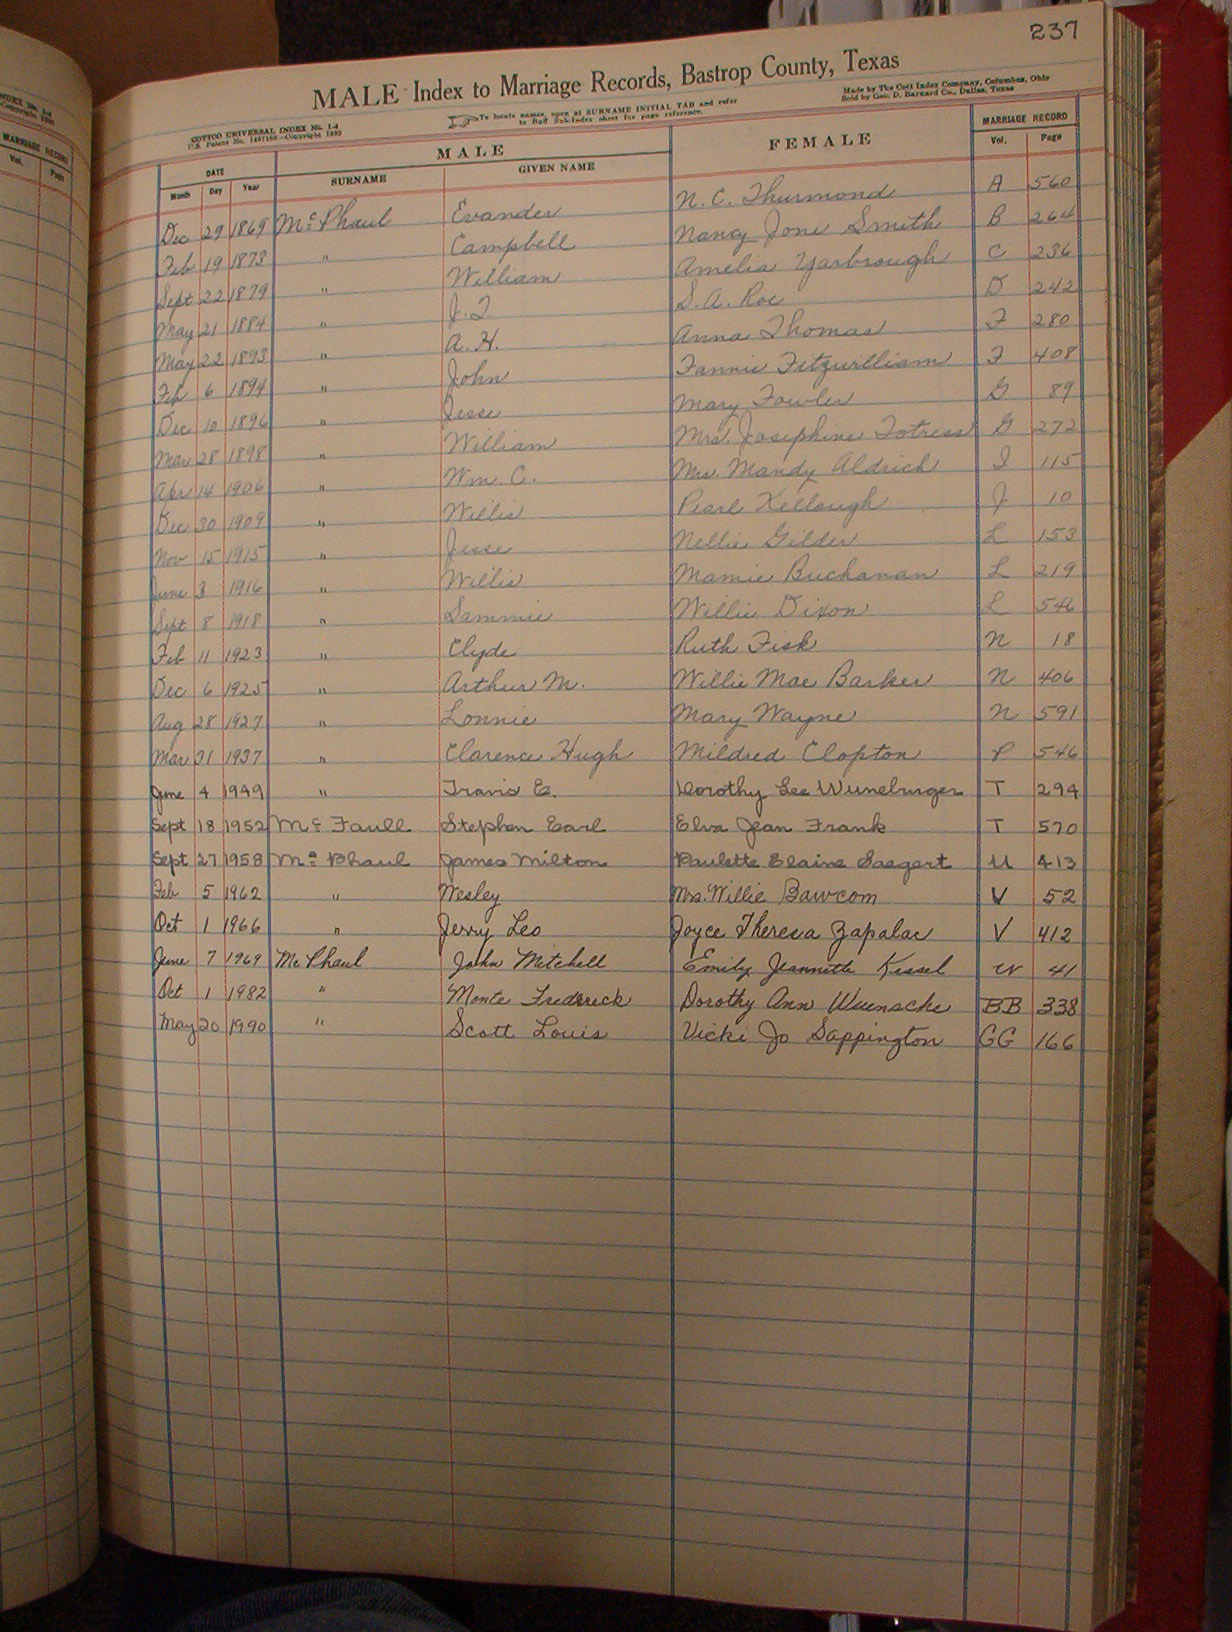 237
MALE Index to Marriage Records, Bastrop County, Texas
COTTCO UNIVERSAL INDEX No. 1-d
To locate names, open at SURNAME INITIAL TAB and refer
Made by The Cott Index Company, Columbus, Ohio
to Buff Sub-Index sheet for page reference.
Sold by Geo. D. Barnard Co., Dallas, Texas
DATE MALE FEMALE MARRIAGE RECORD
Month Day Year SURNAME GIVEN NAME Vol. Page
Dec 29 1869 McPhaul Evander N. C. Thurmond A 560
Feb 19 1873 " Campbell Nancy Jone Smith B 264
Sept 22 1879 " William Amelia Yarbrough C 236
May 21 1884 " J. T. S. A. Roe D 242
May 22 1893 " A. H. Anna Thomas F 280
Feb 6 1894 " John Fannie Fitzwilliam F 408
Dec 10 1896 " Jesse Mary Fowler G 89
Mar 28 1898 " William Mrs. Josephine Fotress G 272
Apr 14 1906 " Wm. C. Mrs. Mandy Aldrich I 115
Dec 30 1909 " Willis Pearl Kellough J 10
Nov 15 1915 " Jesse Nellie Gilder L 153
June 3 1916 " Willis Mamie Buchanan L 219
Sept 8 1918 " Sammie Willie Dixon L 546
Feb 11 1923 " Clyde Ruth Fisk N 18
Dec 6 1925 " Arthur M. Willie Mae Barker N 406
Aug 28 1927 " Lonnie Mary Wayne N 591
Mar 21 1937 " Clarence Hugh Mildred Clopton P 546
June 4 1949 " Travis E. Dorothy Lee Wuneburger T 294
Sept 18 1952 McFaull Stephen Earl Elva Jean Frank T 570
Sept 27 1958 McPhaul James Milton Paulette Elaine Saegert U 413
Feb 5 1962 " Wesley Mrs. Willie Bawcom V 52
Oct 1 1966 " Jerry Leo Joyce Theresa Zapalac V 412
June 7 1969 McPhaul John Mitchell Emily Jeannette Kissel W 41
Oct 1 1982 " Monte Fredrick Dorothy Ann Wuensche BB 338
May 20 1990 " Scott Louis Vicki Jo Sappington GG 166